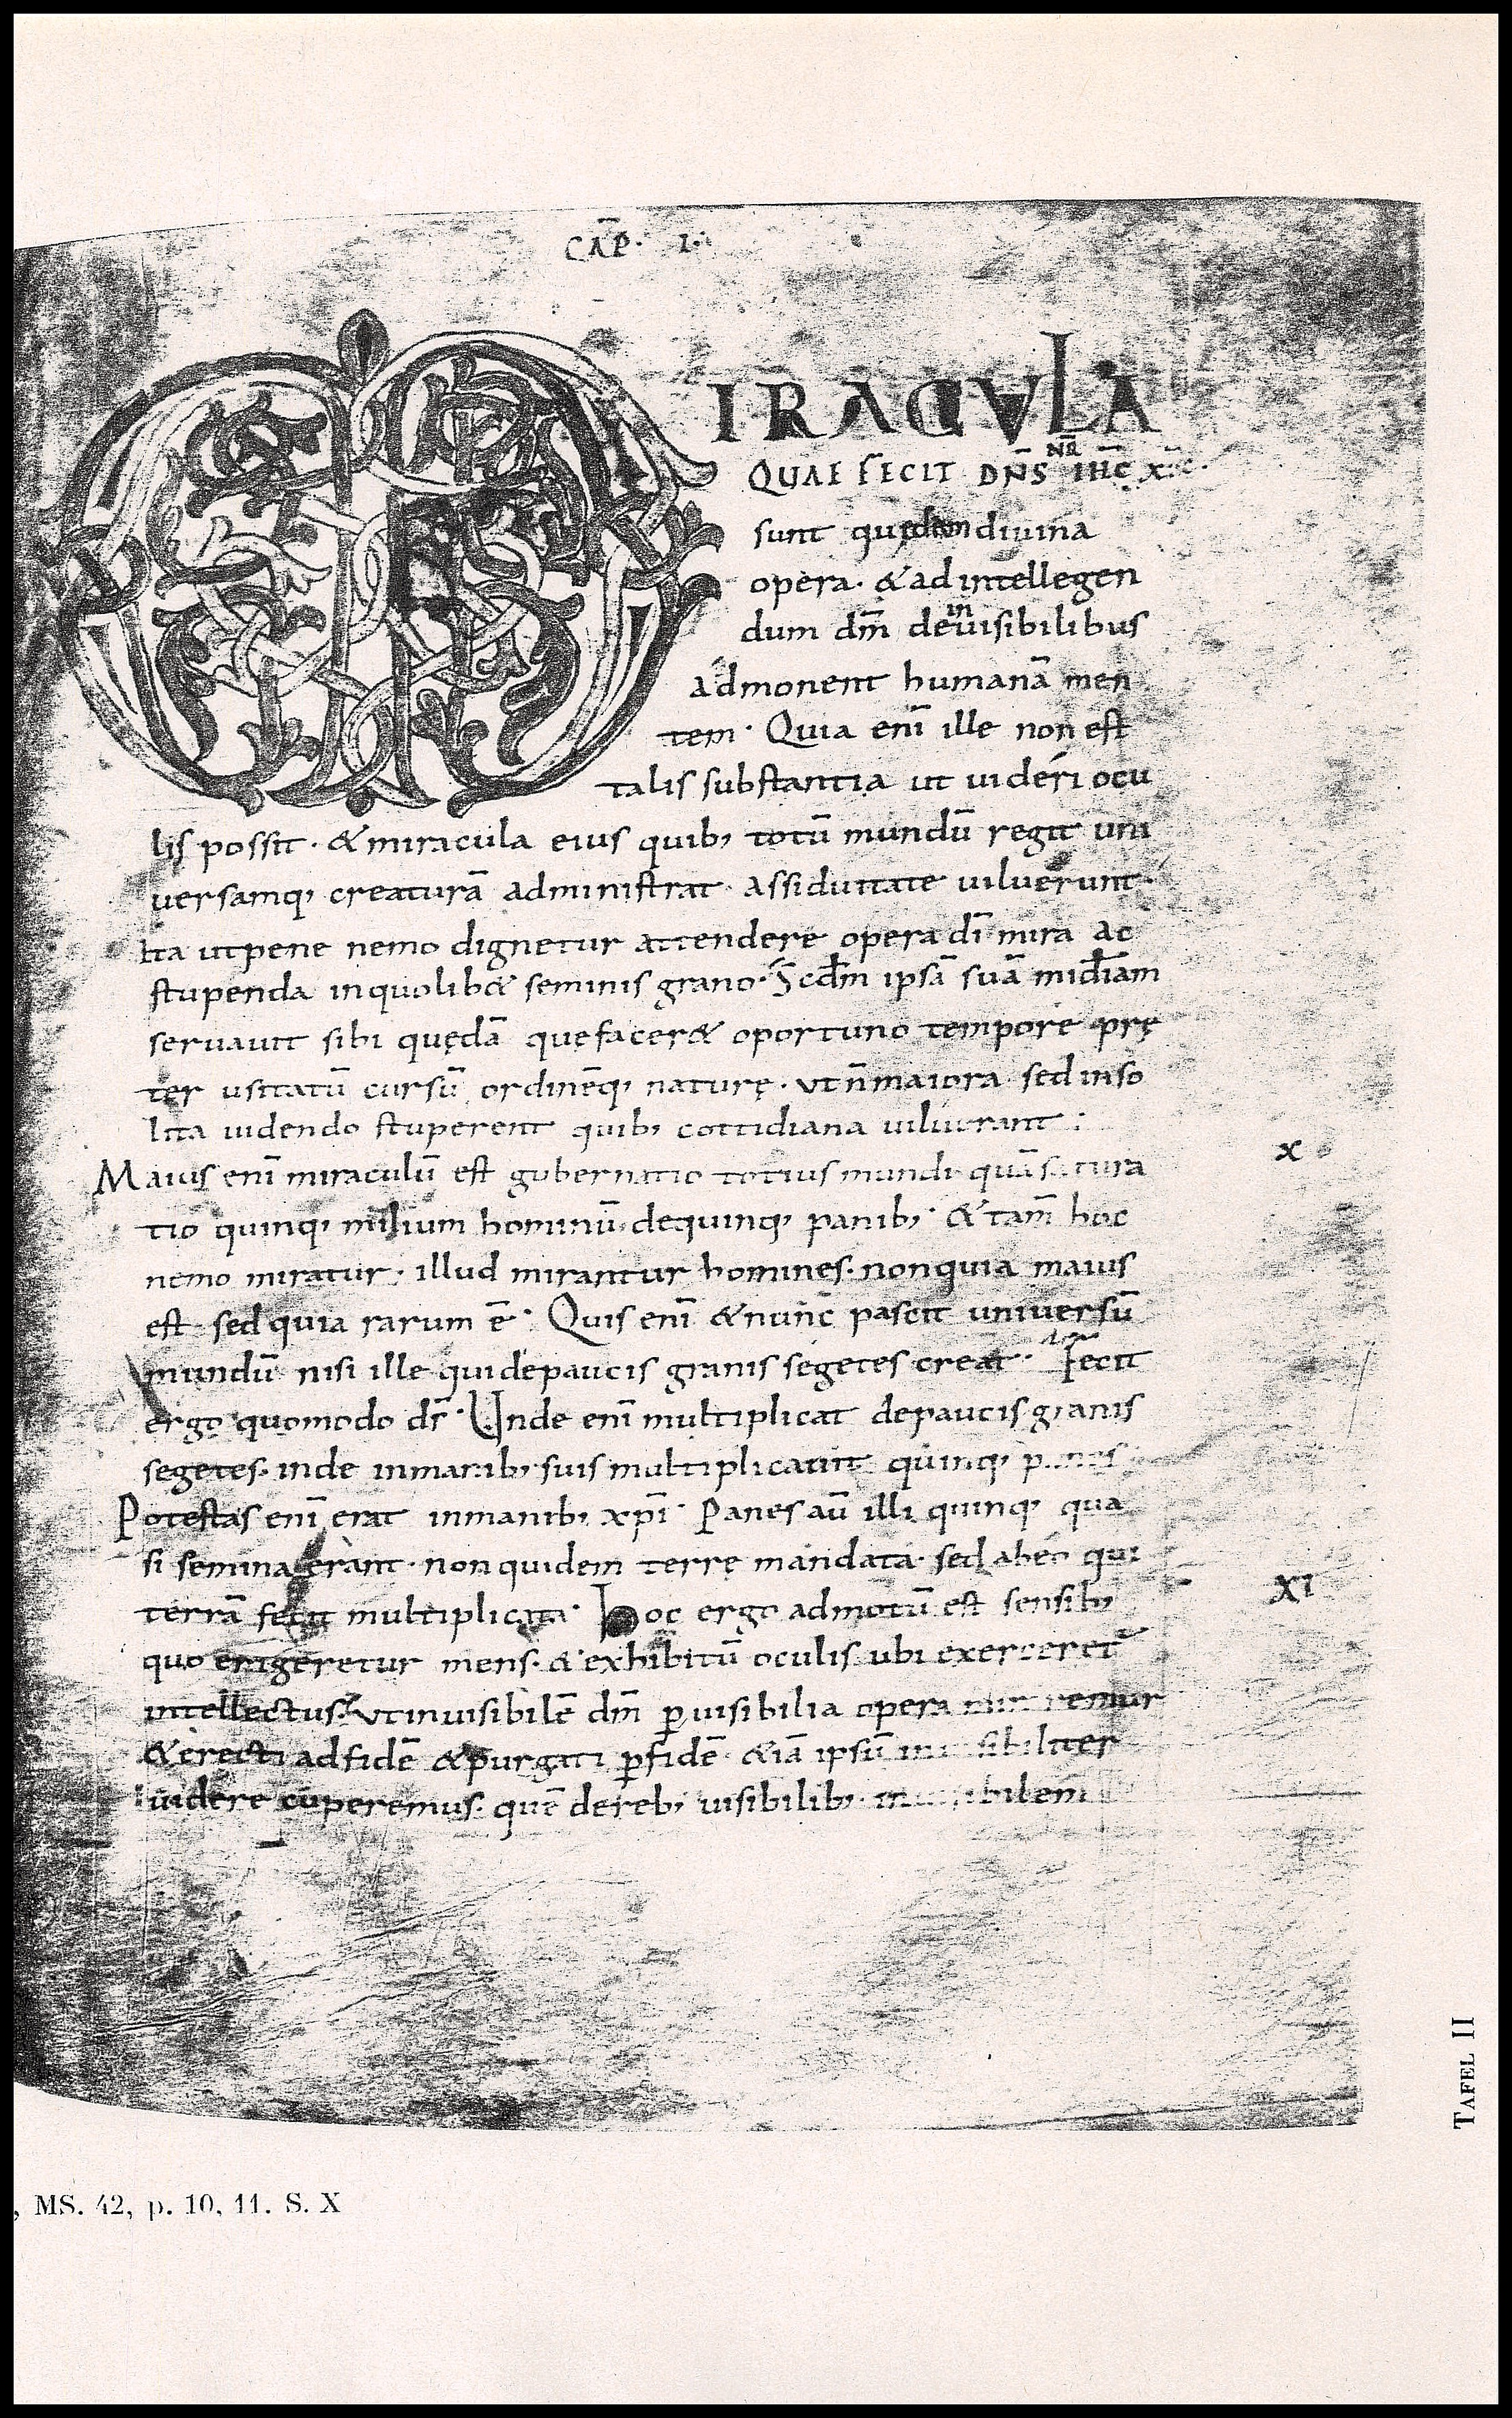 CAP̄· I·
MIRACVLA
QVAE FECIT DN̄S NR̄ IHC̄ X̄PC·
sunt quędam diuina
opera· & ad intellegen
dum dm̄ de inuisibilibus
admonent humanā men
tem· Quia enī ille non est
talis substantia ut uideri ocu
lis possit· & miracula eius quib; totū mundū regit uni
uersamq; creaturā administrat· assiduitate uiluerunt·
Ita ut pene nemo dignetur attendere opera dī mira ac
stupenda in quolib& seminis grano· Scdm̄ ipsā suā mīdiam
seruauit sibi quędā quę facer& oportuno tempore prę
ter usitatū cursū ordinēq; naturę· ut n̄ maiora sed inso
lita uidendo stuperent quib; cottidiana uiluerant·
Maius enī miraculū est gubernatio totius mundi quā satura
x
tio quinq; milium hominū· de quinq; panib;· & tam̄ hoc
nemo miratur· illud mirantur homines· non quia maius
est sed quia rarum ē· Quis enī & nunc pascit universū
mundū nisi ille qui de paucis granis segetes creat· Fecit
ergo quomodo ds̄· Unde enī multiplicat de paucis granis
segetes· inde in manib; suis multiplicauit quinq; panes
Potestas enī erat in manib; xpī· Panes aū illi quinq; qua
si semina erant· non quidem terrę mandata· sed ab eo qui
terrā fecit multiplicata· Hoc ergo admotū est sensib;
XI
quo erigeretur mens· & exhibitū oculis ubi exerceret̄
intellectus· ut inuisibilē dm̄ p̱ uisibilia opera miraremur
& erecti ad fidē & purgati p̱ fidē· &iā ipsū inuisibiliter
uidere cuperemus· quē de reb; uisibilib; inuisibilem
TAFEL II
, MS. 42, p. 10, 11. S. X